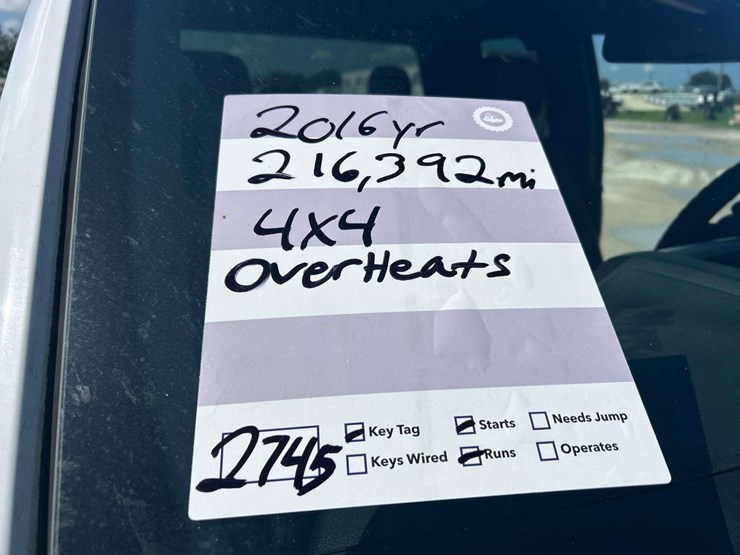 2016yr
216,392mi
4x4
OverHeats
2745
Key Tag
Starts
Needs Jump
Keys Wired
Runs
Operates